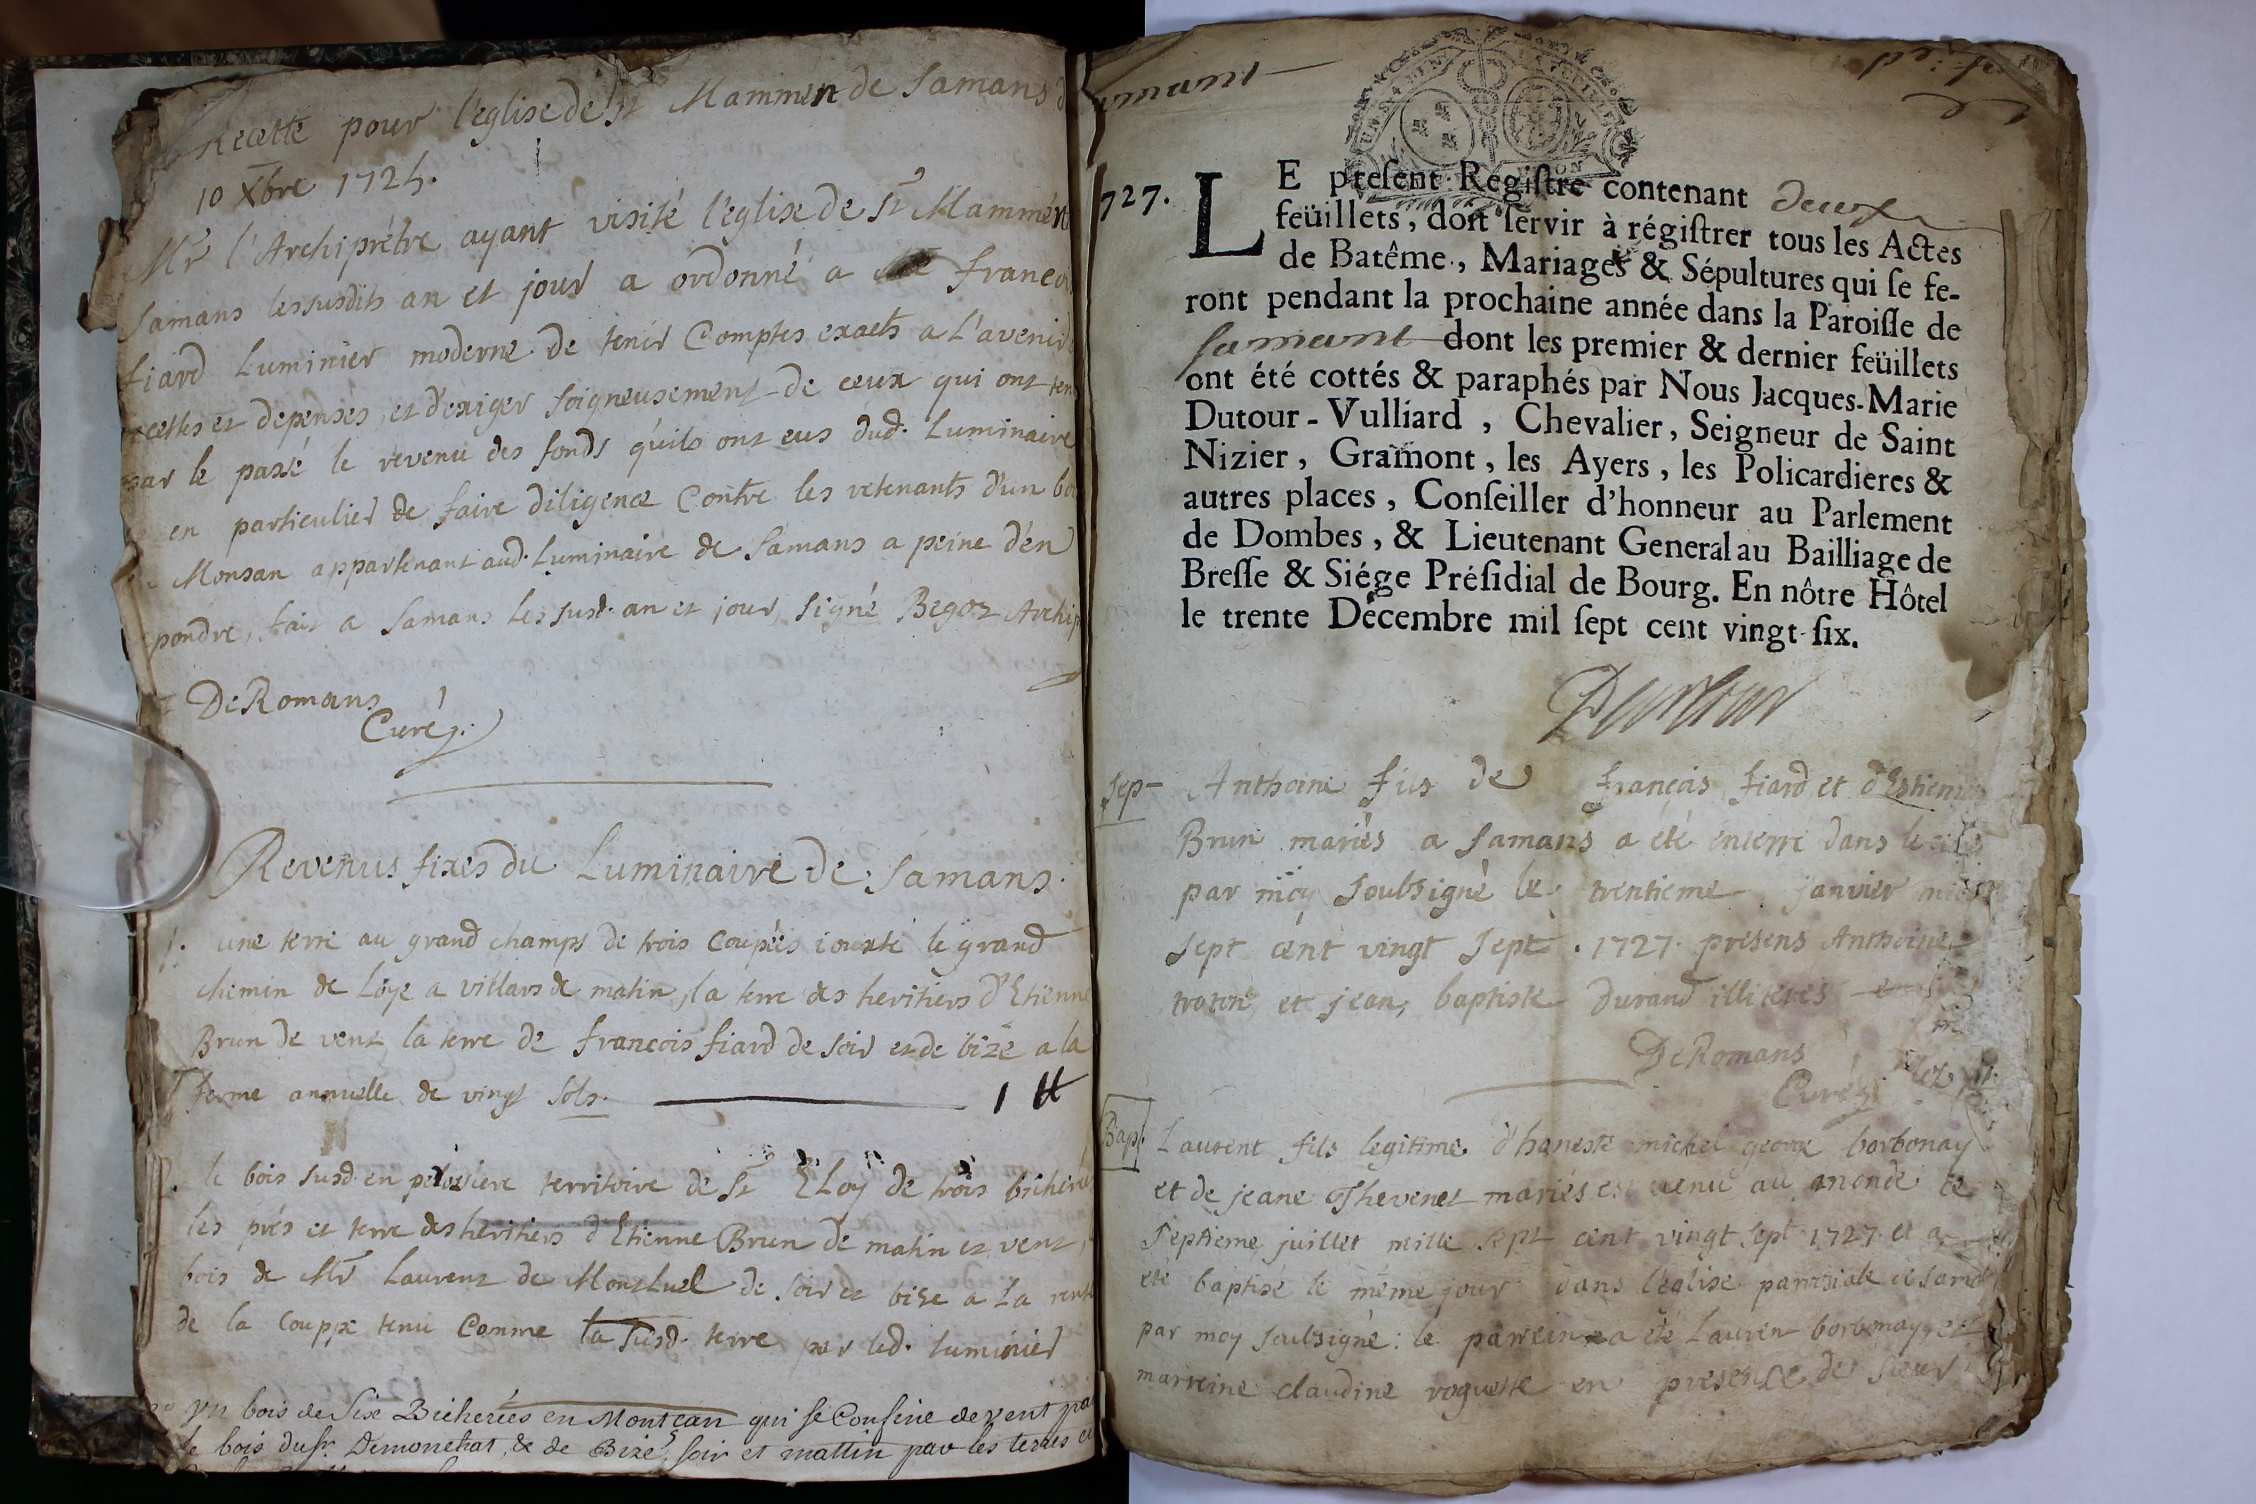 Recette pour l'eglise de St Mammen de Samans
10 Xbre 1724.
Mr l'Archiprétre ayant visité l'eglise de St Mammén
Samans les susdits an et jour a ordonné a francoi
fiard Luminier moderne de tenir Comptes exacts a L'avenir
cettes et depenses, et d'exiger soigneusement de ceux qui ont ten
par le passé le revenu des fonds qu'ils ont eus dud. Luminaire
en particulier de faire diligence Contre les retenants d'un bo
Monsan appartenant aud. Luminaire de Samans a peine d'en
pondre, fait a Samans les susd. an et jour, signé Begoz Archip
DeRomans
Curé
Revenus fixes du Luminaire de Samans.
1. une terre au grand champs de trois Coupées iouxte le grand
chemin de Loye a villars de matin, la terre des heritiers d'Etienne
Brun de vent, la terre de francois fiard de soir et de bize a la
ferme annuelle de vingt sols. 1 ₶
le bois susd. en territoire de St ELoy de trois
les prés et terre des heritiers d'Etienne Brun de matin et vent,
bois de Mr Laurent de Montluel de soir et bize a La rente
de la Couppe tenu Comme la susd. terre par led. luminier
yn bois de Six Bicherées en Montçan qui se Confine de vent par
le bois du sr. Demonchat, & de Bize, soir et mattin par les terres
Samant
1727. LE present Registre contenant deux
feüillets, doit servir à régistrer tous les Actes
de Batême, Mariages & Sépultures qui se fe-
ront pendant la prochaine année dans la Paroisse de
samant dont les premier & dernier feüillets
ont été cottés & paraphés par Nous Jacques-Marie
Dutour-Vulliard, Chevalier, Seigneur de Saint
Nizier, Gramont, les Ayers, les Policardieres &
autres places, Conseiller d'honneur au Parlement
de Dombes, & Lieutenant General au Bailliage de
Bresse & Siége Présidial de Bourg. En nôtre Hôtel
le trente Décembre mil sept cent vingt-six.
Dutour
Sep- Anthoine fils de françois fiard et d'Estienn
Brun mariés a Samans a été enterré dans le
par moy soubsigné le trentieme janvier
sept cent vingt sept. 1727. presens Anthoine
et jean, baptiste Durand illiterés
DeRomans
Curé
Bap. Laurent fils legitime d'honeste michel george borbonay
et de jeane Thevenet mariés est venu au monde le
septieme juillet mille sept cent vingt sept 1727 et a
eté baptisé le même jour dans l'église parroisiale de
par moy soubsigné: le parrein a été Laurent borbonay et
marreine claudine roguette en presence de sieur